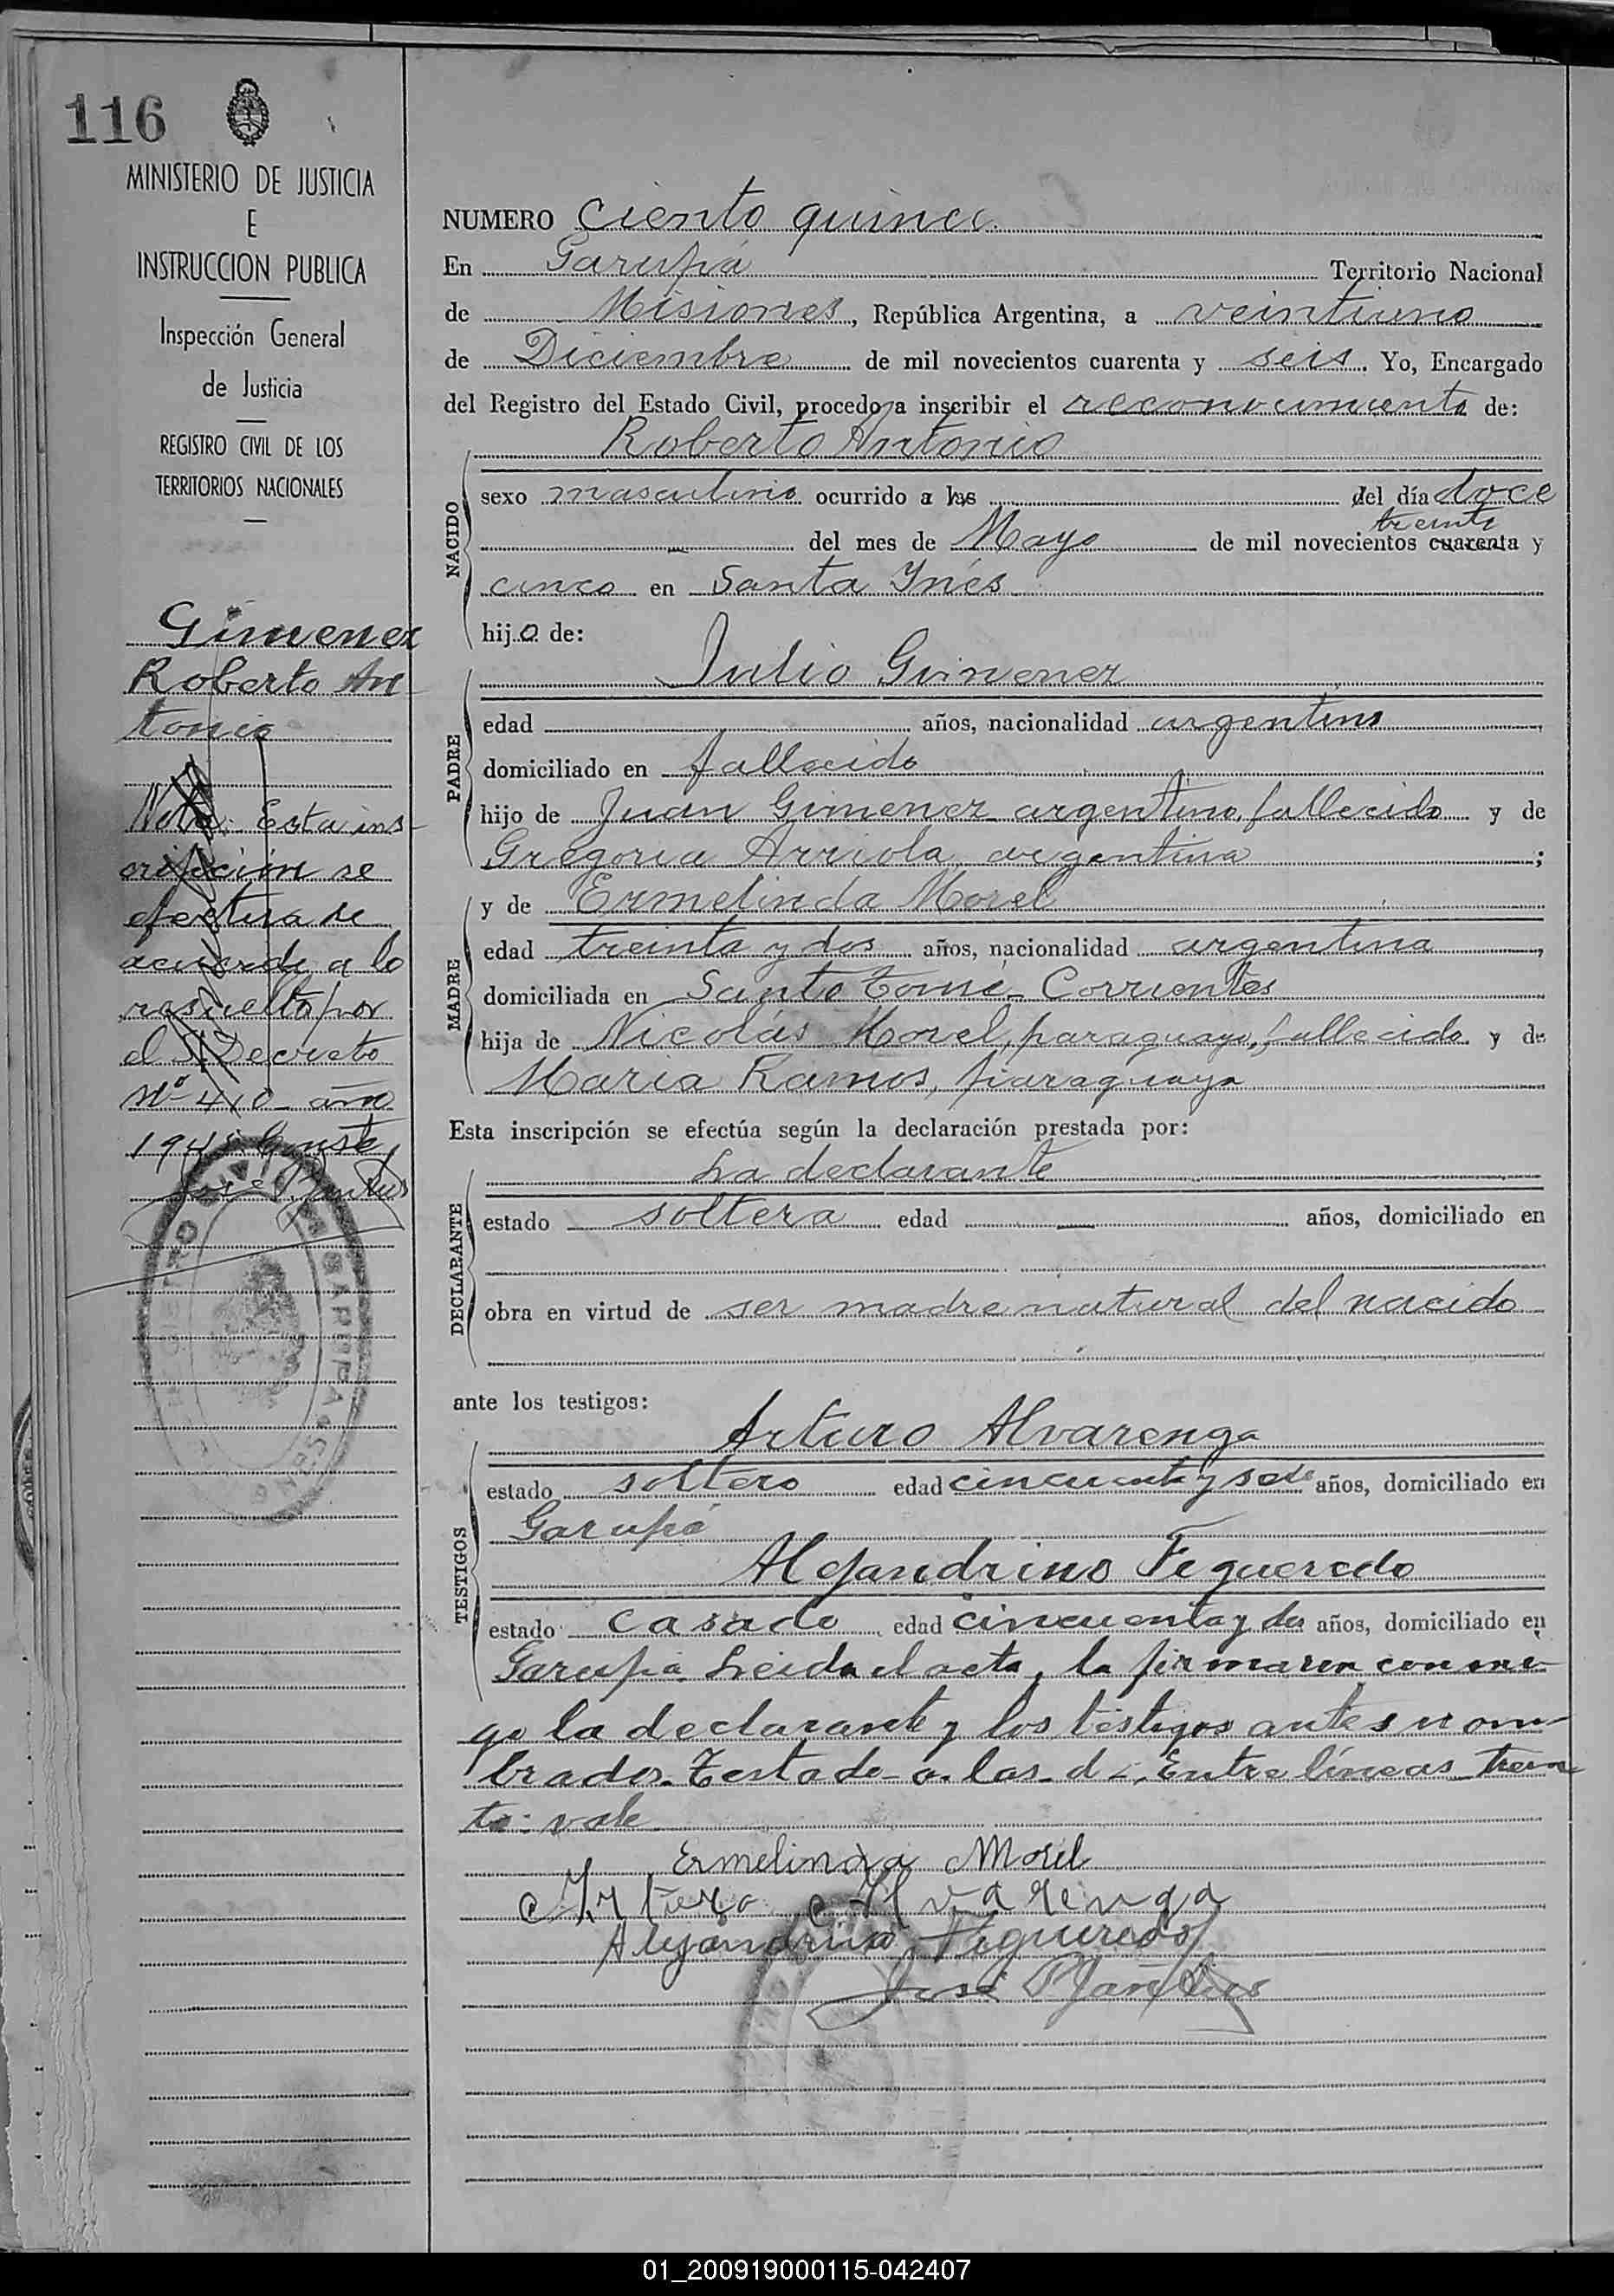 116
MINISTERIO DE JUSTICIA
E
INSTRUCCION PUBLICA
Inspección General
de Justicia
REGISTRO CIVIL DE LOS
TERRITORIOS NACIONALES
Gimenez
Roberto An
tonio
Nota: Esta ins-
cripción se
efectua de
acuerdo a lo
resuelto por
el S/Decreto
Nº 410 año
NUMERO Ciento quince
En Garupá Territorio Nacional
de Misiones, República Argentina, a veintiuno
de Diciembre de mil novecientos cuarenta y seis. Yo, Encargado
del Registro del Estado Civil, procedo a inscribir el reconocimiento de:
Roberto Antonio
NACIDO
sexo masculino ocurrido a las del día doce
treinta
del mes de Mayo de mil novecientos cuarenta y
cinco en Santa Inés
hijo de:
Julio Gimenez
PADRE
edad años, nacionalidad argentino
domiciliado en fallecido
hijo de Juan Gimenez argentino, fallecido y de
Gregoria Arriola, argentina;
MADRE
y de Ermelinda Morel
edad treinta y dos años, nacionalidad argentina,
domiciliada en Santo Tomé - Corrientes
hija de Nicolás Morel, paraguayo, fallecido y de
Maria Ramos, paraguaya
Esta inscripción se efectúa según la declaración prestada por:
DECLARANTE
La declarante
estado soltera edad — años, domiciliado en
obra en virtud de ser madre natural del nacido
ante los testigos:
TESTIGOS
Arturo Alvarenga
estado soltero edad cincuenta y años, domiciliado en
Garupá
Alejandrino Figueredo
estado casado edad cincuenta y dos años, domiciliado en
Garupá. Leida el acta, la firmaron conmi-
go la declarante y los testigos antes nom-
brados. Testado - a - las - d -. Entre líneas trein
ta: vale
Ermelinda Morel
Arturo Alvarenga
Alejandrino Figueredo
José
01_200919000115-042407